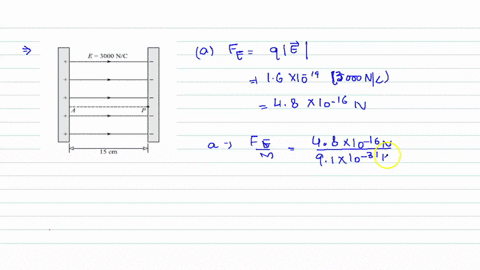 ⇒
E = 3000 N/C
A
P
15 cm
(a) F_E = q|E⃗|
= 1.6 X10^19 (3000 N/C)
= 4.8 X10^-16 N
a → F_E/m = 4.8 X10^-16 N / 9.1 X10^-31 k